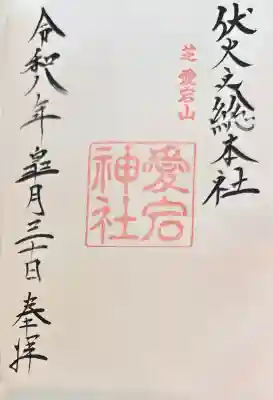 伏火之総本社
芝 愛宕山
愛宕神社
令和八年皐月三十日 奉拝